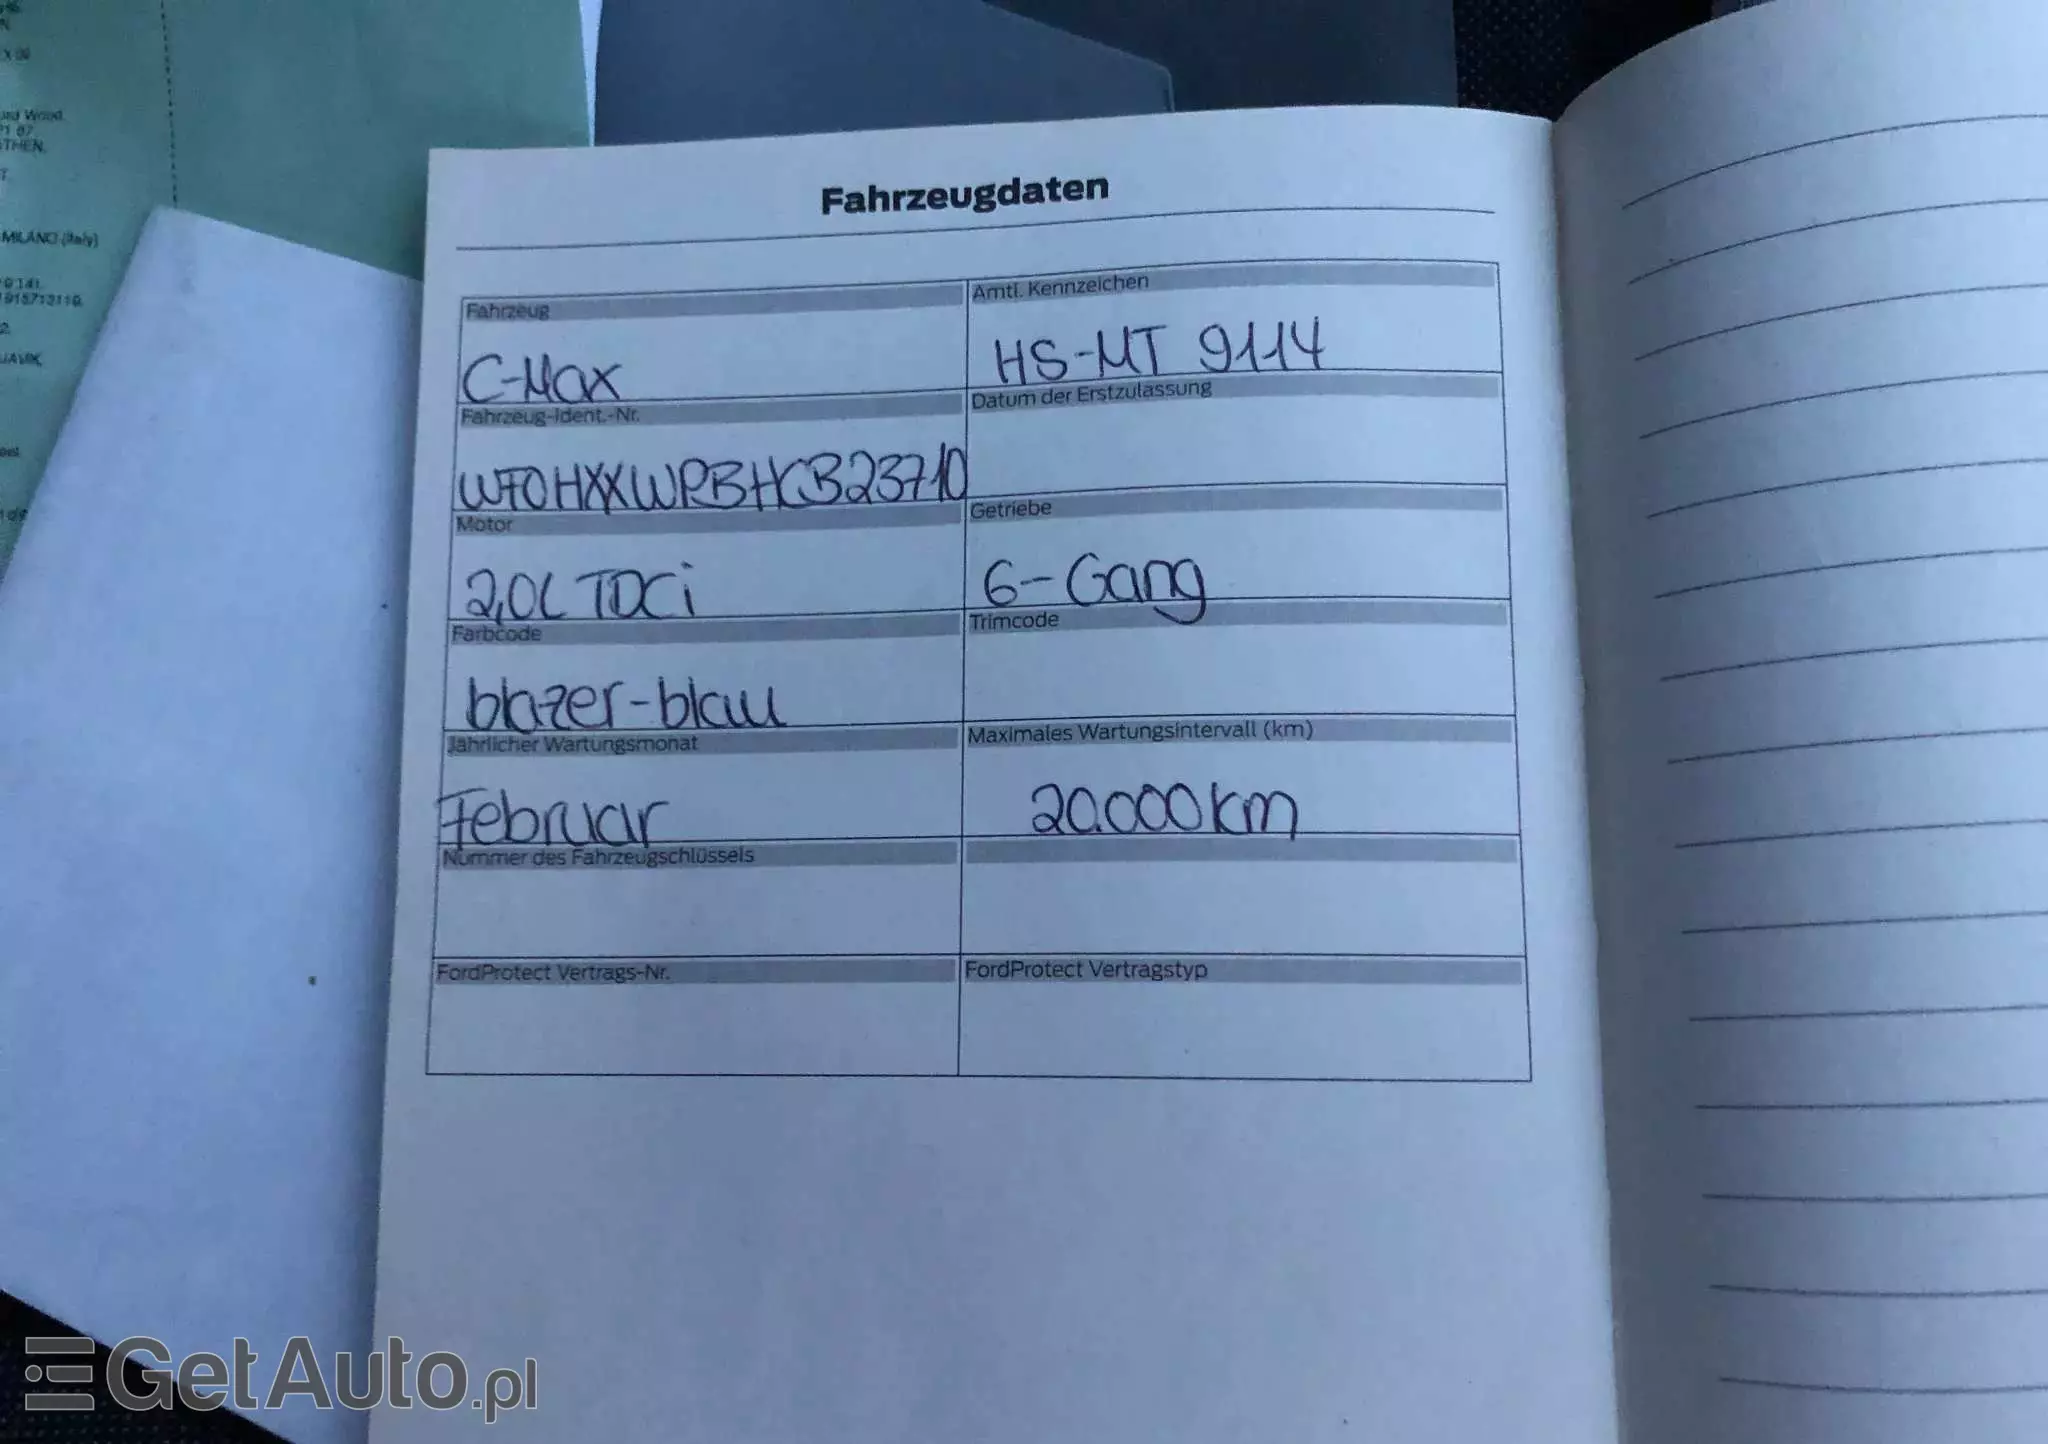 Wood.
THEN.
MILANO (Italy)
Fahrzeugdaten
Fahrzeug
Amtl. Kennzeichen
C-Max
HS-MT 9114
Fahrzeug-Ident.-Nr.
Datum der Erstzulassung
WF0HXXWPBHCB23710
Motor
Getriebe
2,0L TDCi
6-Gang
Farbcode
Trimcode
blazer-blau
Jährlicher Wartungsmonat
Maximales Wartungsintervall (km)
Februar
20.000 km
Nummer des Fahrzeugschlüssels
FordProtect Vertrags-Nr.
FordProtect Vertragstyp
GetAuto.pl